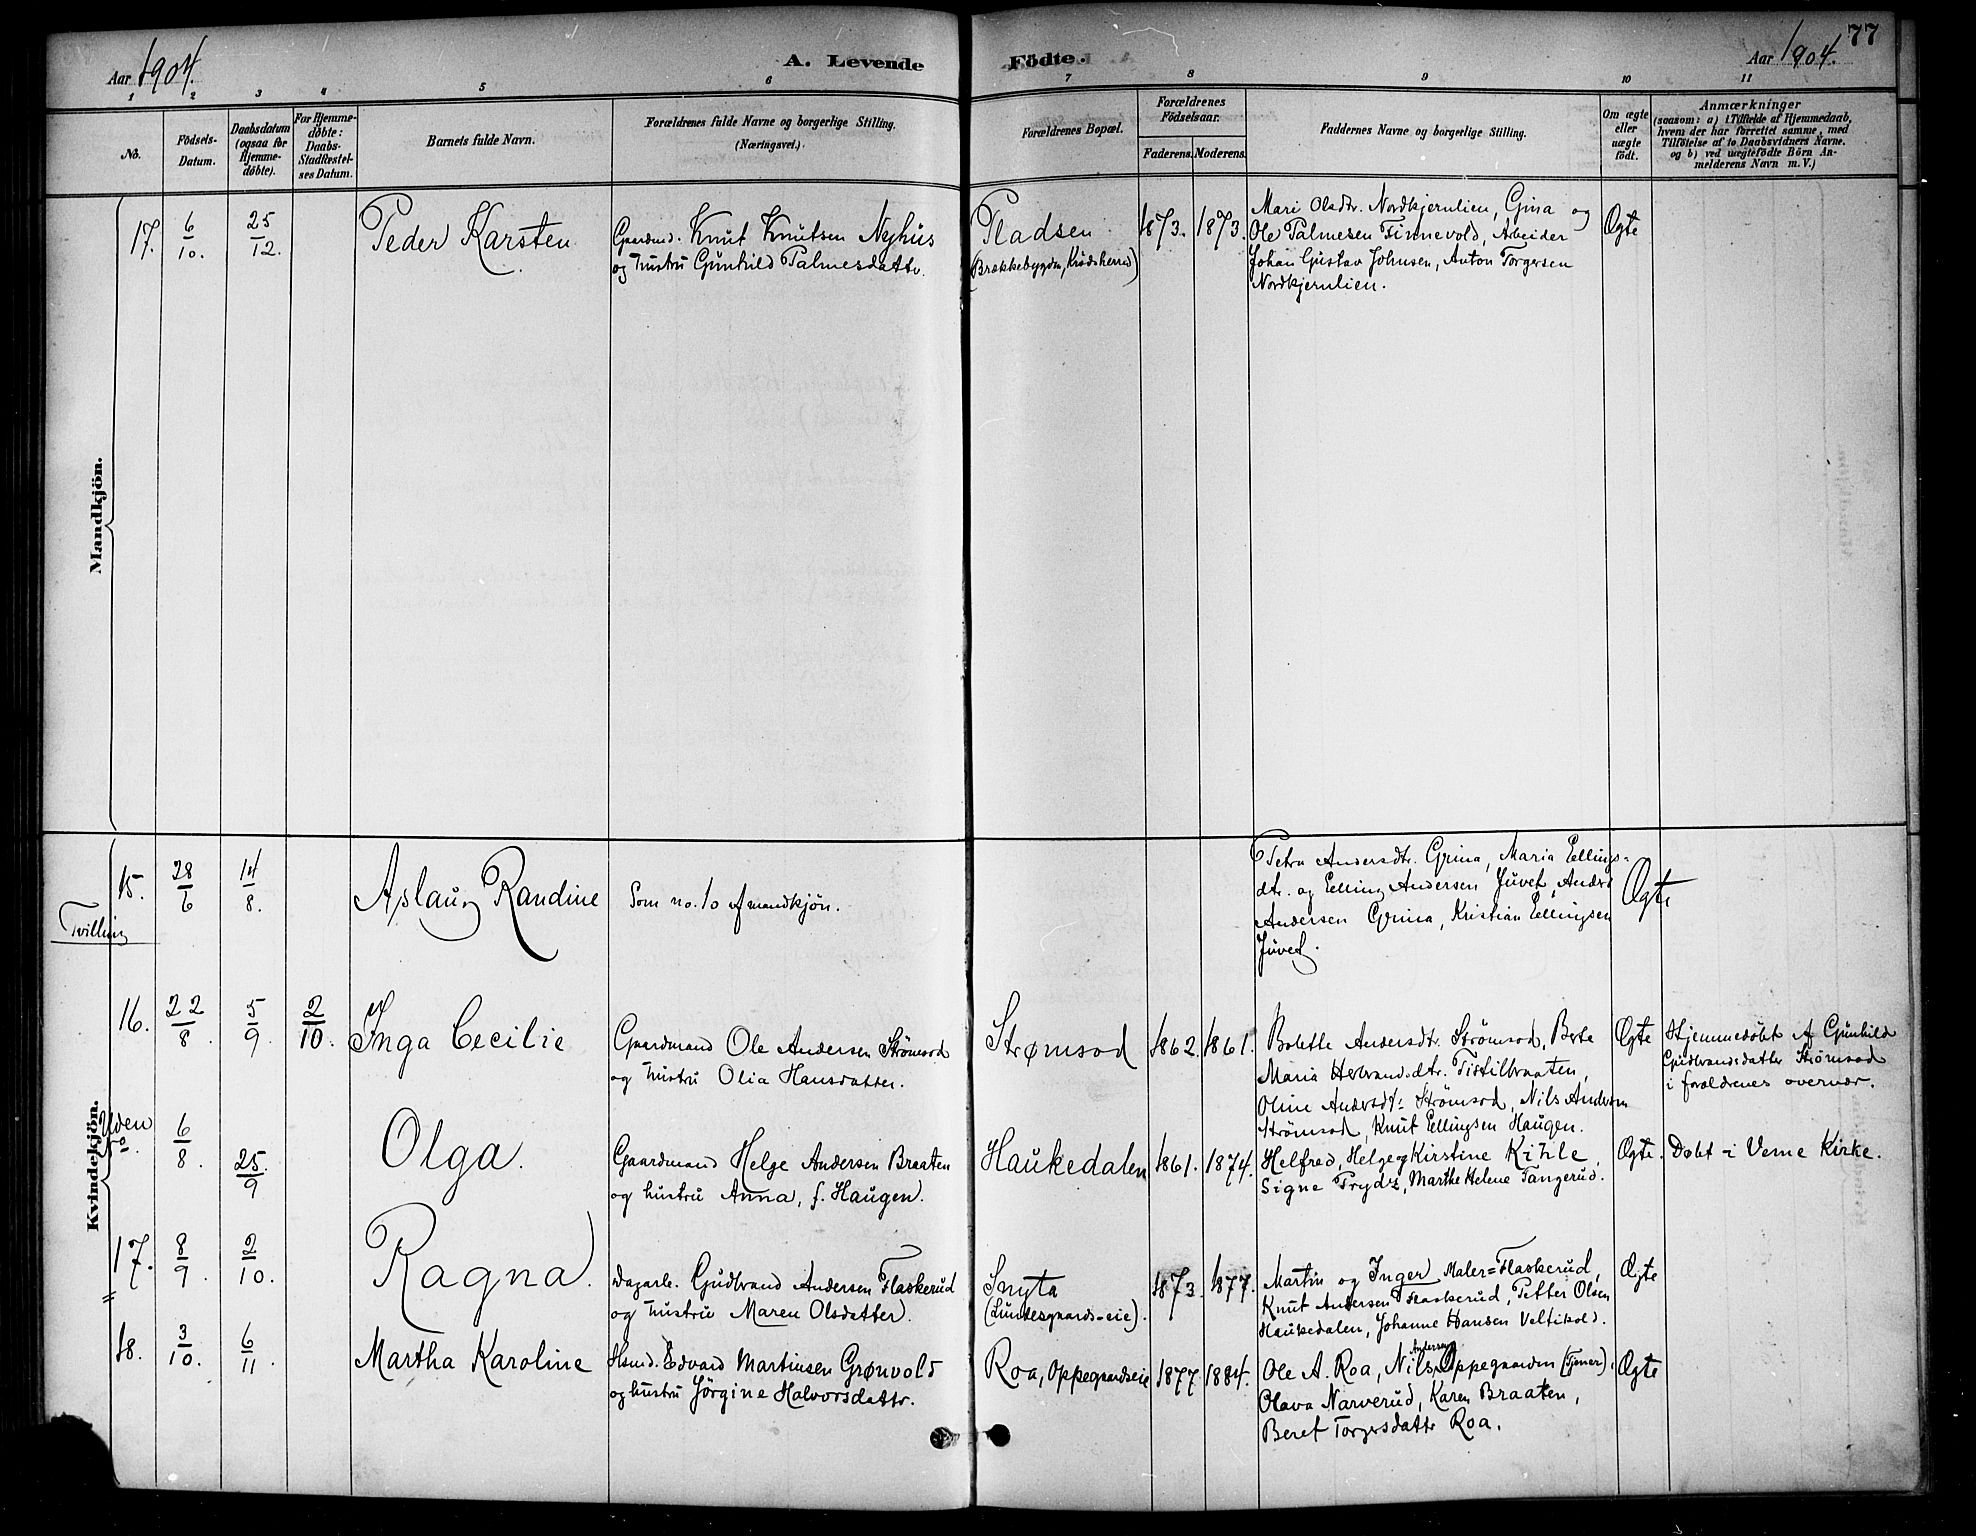 Aar 1904.
A. Levende
Födte.
Aar 1904.
77
1 2 3 4 5 6 7 8 9 10 11
No.
Födsels-
Datum.
Daabsdatum
(ogsaa for
Hjemme-
døbte).
For Hjemme-
døbte:
Daabs-
Stadfæstel-
ses Datum.
Barnets fulde Navn.
Forældrenes fulde Navne og borgerlige Stilling.
(Næringsvei.)
Forældrenes Bopæl.
Forældrenes
Födselsaar.
Faderens. Moderens.
Faddernes Navne og borgerlige Stilling.
Om ægte
eller
uægte
födt.
Anmærkninger
(saasom: a) i Tilfælde af Hjemmedaab,
hvem der har forrettet samme, med
Tilföielse af to Daabsvidners Navne.
og b) ved uægtefödte Börn An-
melderens Navn m. V.)
Mandkjön.
17.
6/10.
25/12.
Peder Karsten
Gaardmd. Knut Knutsen Nyhus
og hustru Gunhild Palmesdattr.
Pladsen
(Brækkebygden, Krødsherred)
1873. 1873.
Mari Olsdtr. Nordkjernlien, Gina og
Ole Palmesen Finnevold, Arbeider
Johan Gustav Johnsen, Anton Torgersen
Nordkjernlien.
Ægte
Kvindekjön.
15.
Tvilling
28/6
14/8.
Aslaug Randine
Som no. 10 af mandkjön.
Petra Andersdtr. Grina, Maria Ellings-
dtr. og Elling Andersen Juvet, Anders
Andersen Grina, Kristian Ellingsen
Juvet.
Ægte
16.
22/8.
5/9.
2/10.
Inga Cecilie
Gaardmand Ole Andersen Strömsod
og hustru Olia Hansdatter.
Strømsod
1862. 1861.
Bolette Andersdtr. Strömsod, Berte
Maria Herbrandsdtr. Tistilbraaten,
Oline Andersdtr. Strömsod, Nils Andersen
Strömsod, Knut Ellingsen Haugen.
Ægte
Hjemmedøbt af Gunhild
Gudbrandsdatter Strömsod
i forældrenes overvær.
Uden
No.
6/8.
25./9
Olga.
Gaardmand Helge Andersen Braaten
og hustru Anna, f. Haugen.
Haukedalen
1861. 1874.
Helfred, Helge og Kirstine Kihle,
Signe Trydz, Marthe Helene Tangerud.
Ægte.
Døbt i Veme Kirke.
17.
8/9.
2/10.
Ragna.
Dagarb. Gudbrand Andersen Flaskerud
og hustru Maren Olsdatter.
Snyta
(Lundesgaards-eie).
1873. 1877.
Martin og Inger Maler=Flaskerud,
Knut Andersen Flaskerud, Petter Olsen
Haukedalen, Johanne Hansen Veltikold.
Ægte
18.
3/10.
6/11.
Martha Karoline
Hsmd. Edvard Martinsen Grønvold
og hustru Jörgine Halvorsdattr.
Roa, Oppegaardseie
1877. 1884.
Ole A. Roa, Nils Andersen Oppegaarden (Tjener),
Olava Narverud, Karen Braaten,
Beret Torgersdattr Roa.
Ægte